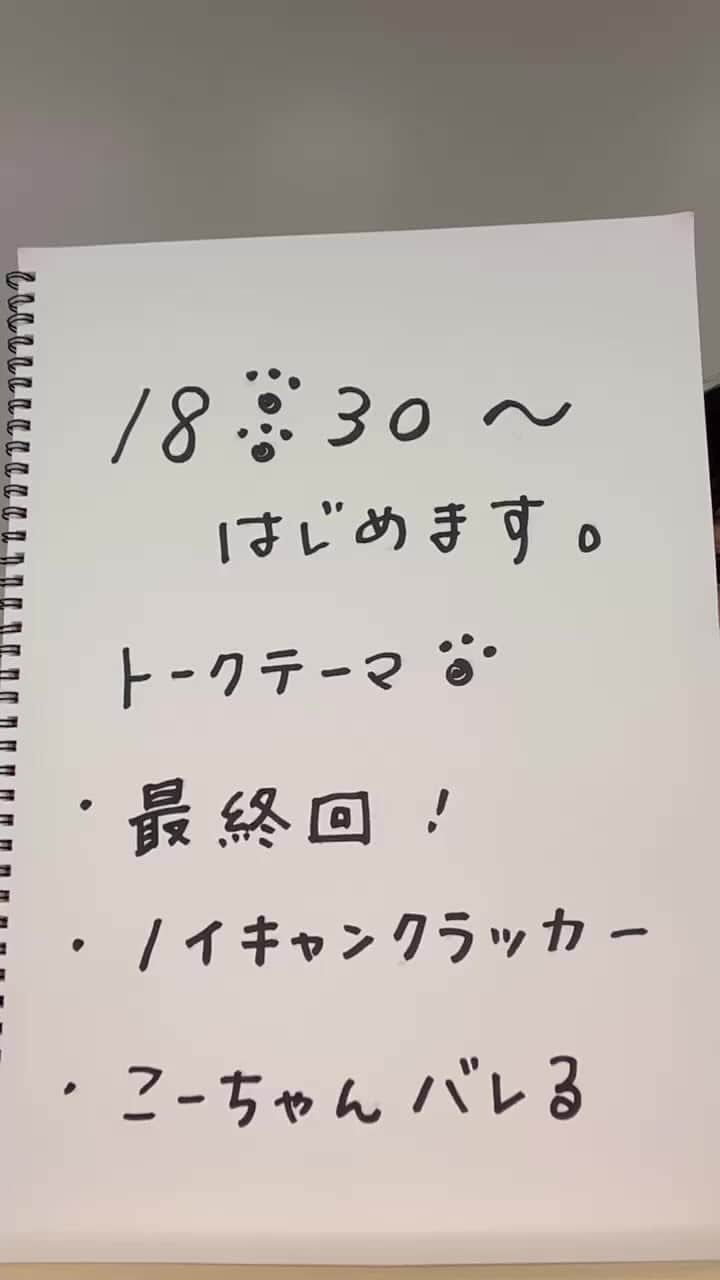 18:30〜
はじめます。
トークテーマ
・最終回！
・ノイキャンクラッカー
・こーちゃんバレる